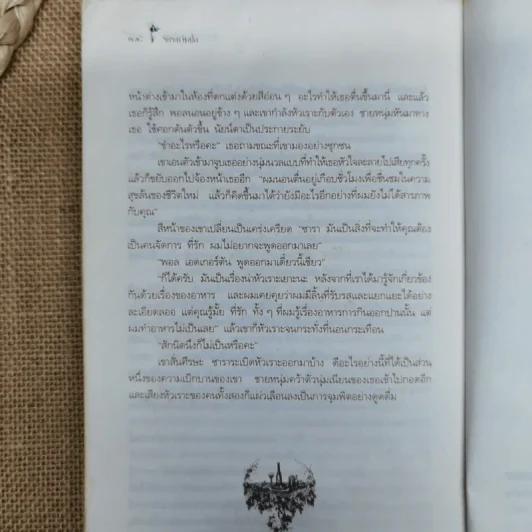 หน้าต่างเข้ามาในห้องที่ตกแต่งด้วยสีอ่อน ๆ อะไรทำให้เธอตื่นขึ้นมานี่ และแล้ว
เธอก็รู้สึก พอลนอนอยู่ข้าง ๆ และเขากำลังหัวเราะกับตัวเอง ชายหนุ่มหันมาทาง
เธอ ใช้ศอกดันตัวขึ้น นัยน์ตาเป็นประกายระยับ
"ขำอะไรหรือคะ" เธอถามขณะที่เขามองอย่างซุกซน
เขาเอนตัวเข้ามาจูบเธออย่างนุ่มนวลแบบที่ทำให้เธอหัวใจละลายไปเสียทุกครั้ง
แล้วก็ขยับออกไปจ้องหน้าเธออีก "ผมนอนตื่นอยู่เกือบชั่วโมงเพื่อชื่นชมในความ
สุขล้นของชีวิตใหม่ แล้วก็คิดขึ้นมาได้ว่ายังมีอะไรอีกอย่างที่ผมยังไม่ได้สารภาพ
กับคุณ"
สีหน้าของเขาเปลี่ยนเป็นเคร่งเครียด "ซารา มันเป็นสิ่งที่จะทำให้คุณต้อง
เป็นคนจัดการ ที่รัก ผมไม่อยากจะพูดออกมาเลย"
"พอล เอดเกอร์ตัน พูดออกมาเดี๋ยวนี้เชียว"
"ก็ได้ครับ มันเป็นเรื่องน่าหัวเราะเยาะนะ หลังจากที่เราได้มารู้จักเกี่ยวข้อง
กันด้วยเรื่องของอาหาร และผมเคยคุยว่าผมมีลิ้นที่รับรสและแยกแยะได้อย่าง
ละเอียดลออ แต่คุณรู้มั้ย ที่รัก ทั้ง ๆ ที่ผมรู้เรื่องอาหารการกินออกปานนั้น แต่
ผมทำอาหารไม่เป็นเลย" แล้วเขาก็หัวเราะจนกระทั่งที่นอนกระเทือน
"สักนิดนึงก็ไม่เป็นหรือคะ"
เขาสั่นศีรษะ ซาราระเบิดหัวเราะออกมาบ้าง ดีอะไรอย่างนี้ที่ได้เป็นส่วน
หนึ่งของความเบิกบานของเขา ชายหนุ่มคว้าตัวนุ่มเนียนของเธอเข้าไปกอดอีก
และเสียงหัวเราะของคนทั้งสองก็แผ่วเลือนลงเป็นการจุมพิตอย่างดูดดื่ม